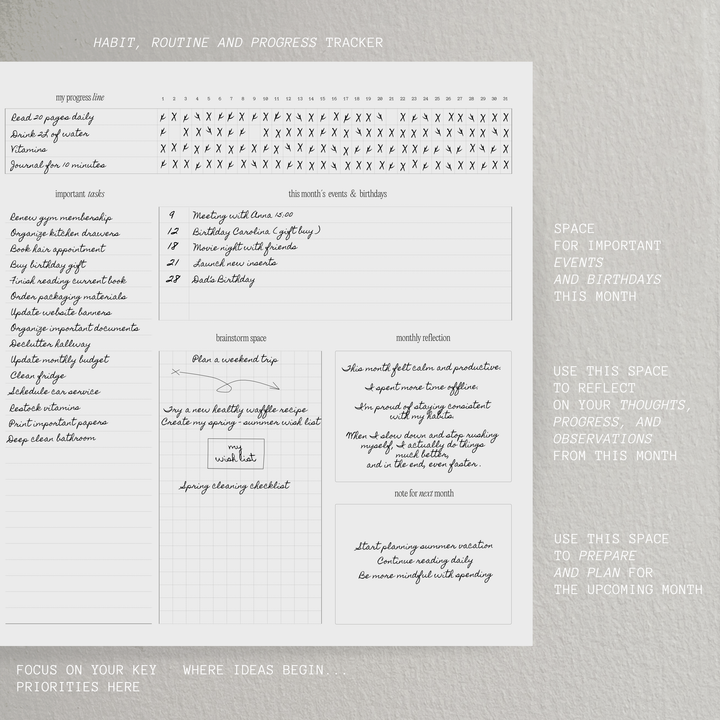 HABIT, ROUTINE AND PROGRESS TRACKER
my progress line
1 2 3 4 5 6 7 8 9 10 11 12 13 14 15 16 17 18 19 20 21 22 23 24 25 26 27 28 29 30 31
Read 20 pages daily
Drink 2L of water
Vitamins
Journal for 10 minutes
important tasks
Renew gym membership
Organize kitchen drawers
Book hair appointment
Buy birthday gift
Finish reading current book
Order packaging materials
Update website banners
Organize important documents
Declutter hallway
Update monthly budget
Clean fridge
Schedule car service
Restock vitamins
Print important papers
Deep clean bathroom
this month's events & birthdays
9 Meeting with Anna 15:00
12 Birthday Carolina (gift buy)
18 Movie night with friends
21 Launch new inserts
28 Dad's Birthday
brainstorm space
Plan a weekend trip
Try a new healthy waffle recipe
Create my spring-summer wish list
my
wish list
Spring cleaning checklist
monthly reflection
This month felt calm and productive.
I spent more time offline.
I'm proud of staying consistent
with my habits.
When I slow down and stop rushing
myself, I actually do things
much better,
and in the end, even faster.
note for next month
Start planning summer vacation
Continue reading daily
Be more mindful with spending
SPACE
FOR IMPORTANT
EVENTS
AND BIRTHDAYS
THIS MONTH
USE THIS SPACE
TO REFLECT
ON YOUR THOUGHTS,
PROGRESS, AND
OBSERVATIONS
FROM THIS MONTH
USE THIS SPACE
TO PREPARE
AND PLAN FOR
THE UPCOMING MONTH
FOCUS ON YOUR KEY
PRIORITIES HERE
WHERE IDEAS BEGIN...